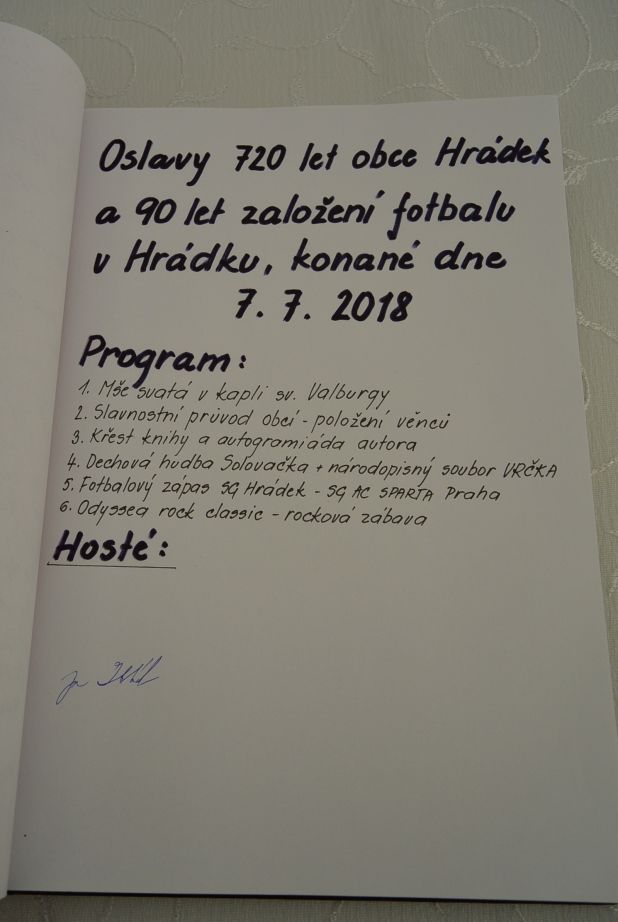 Oslavy 720 let obce Hrádek
a 90 let založení fotbalu
v Hrádku, konané dne
7. 7. 2018
Program:
1. Mše svatá v kapli sv. Valburgy
2. Slavnostní průvod obcí - položení věnců
3. Křest knihy a autogramiáda autora
4. Dechová hudba Solovačka + národopisný soubor VRČKA
5. Fotbalový zápas SG Hrádek - SG AC SPARTA Praha
6. Odyssea rock classic - rocková zábava
Hosté: